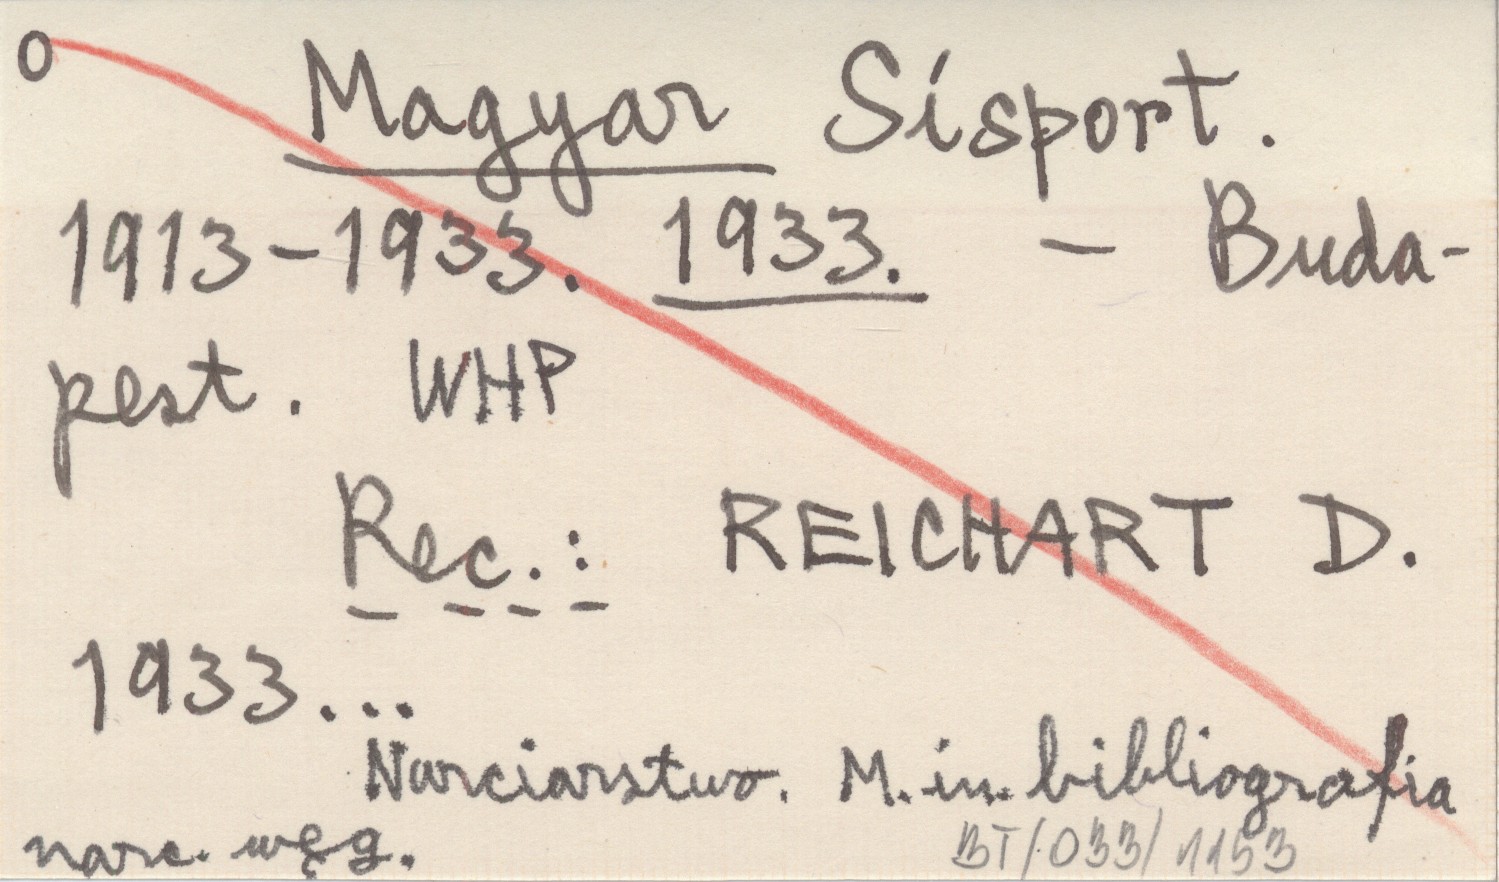 O
Magyar Sísport.
1913-1933. 1933. - Buda-
pest. WHP
Rec.: REICHART D.
1933...
Narciarstwo. M.in. bibliografia
narc. węg.
BT/033/1153